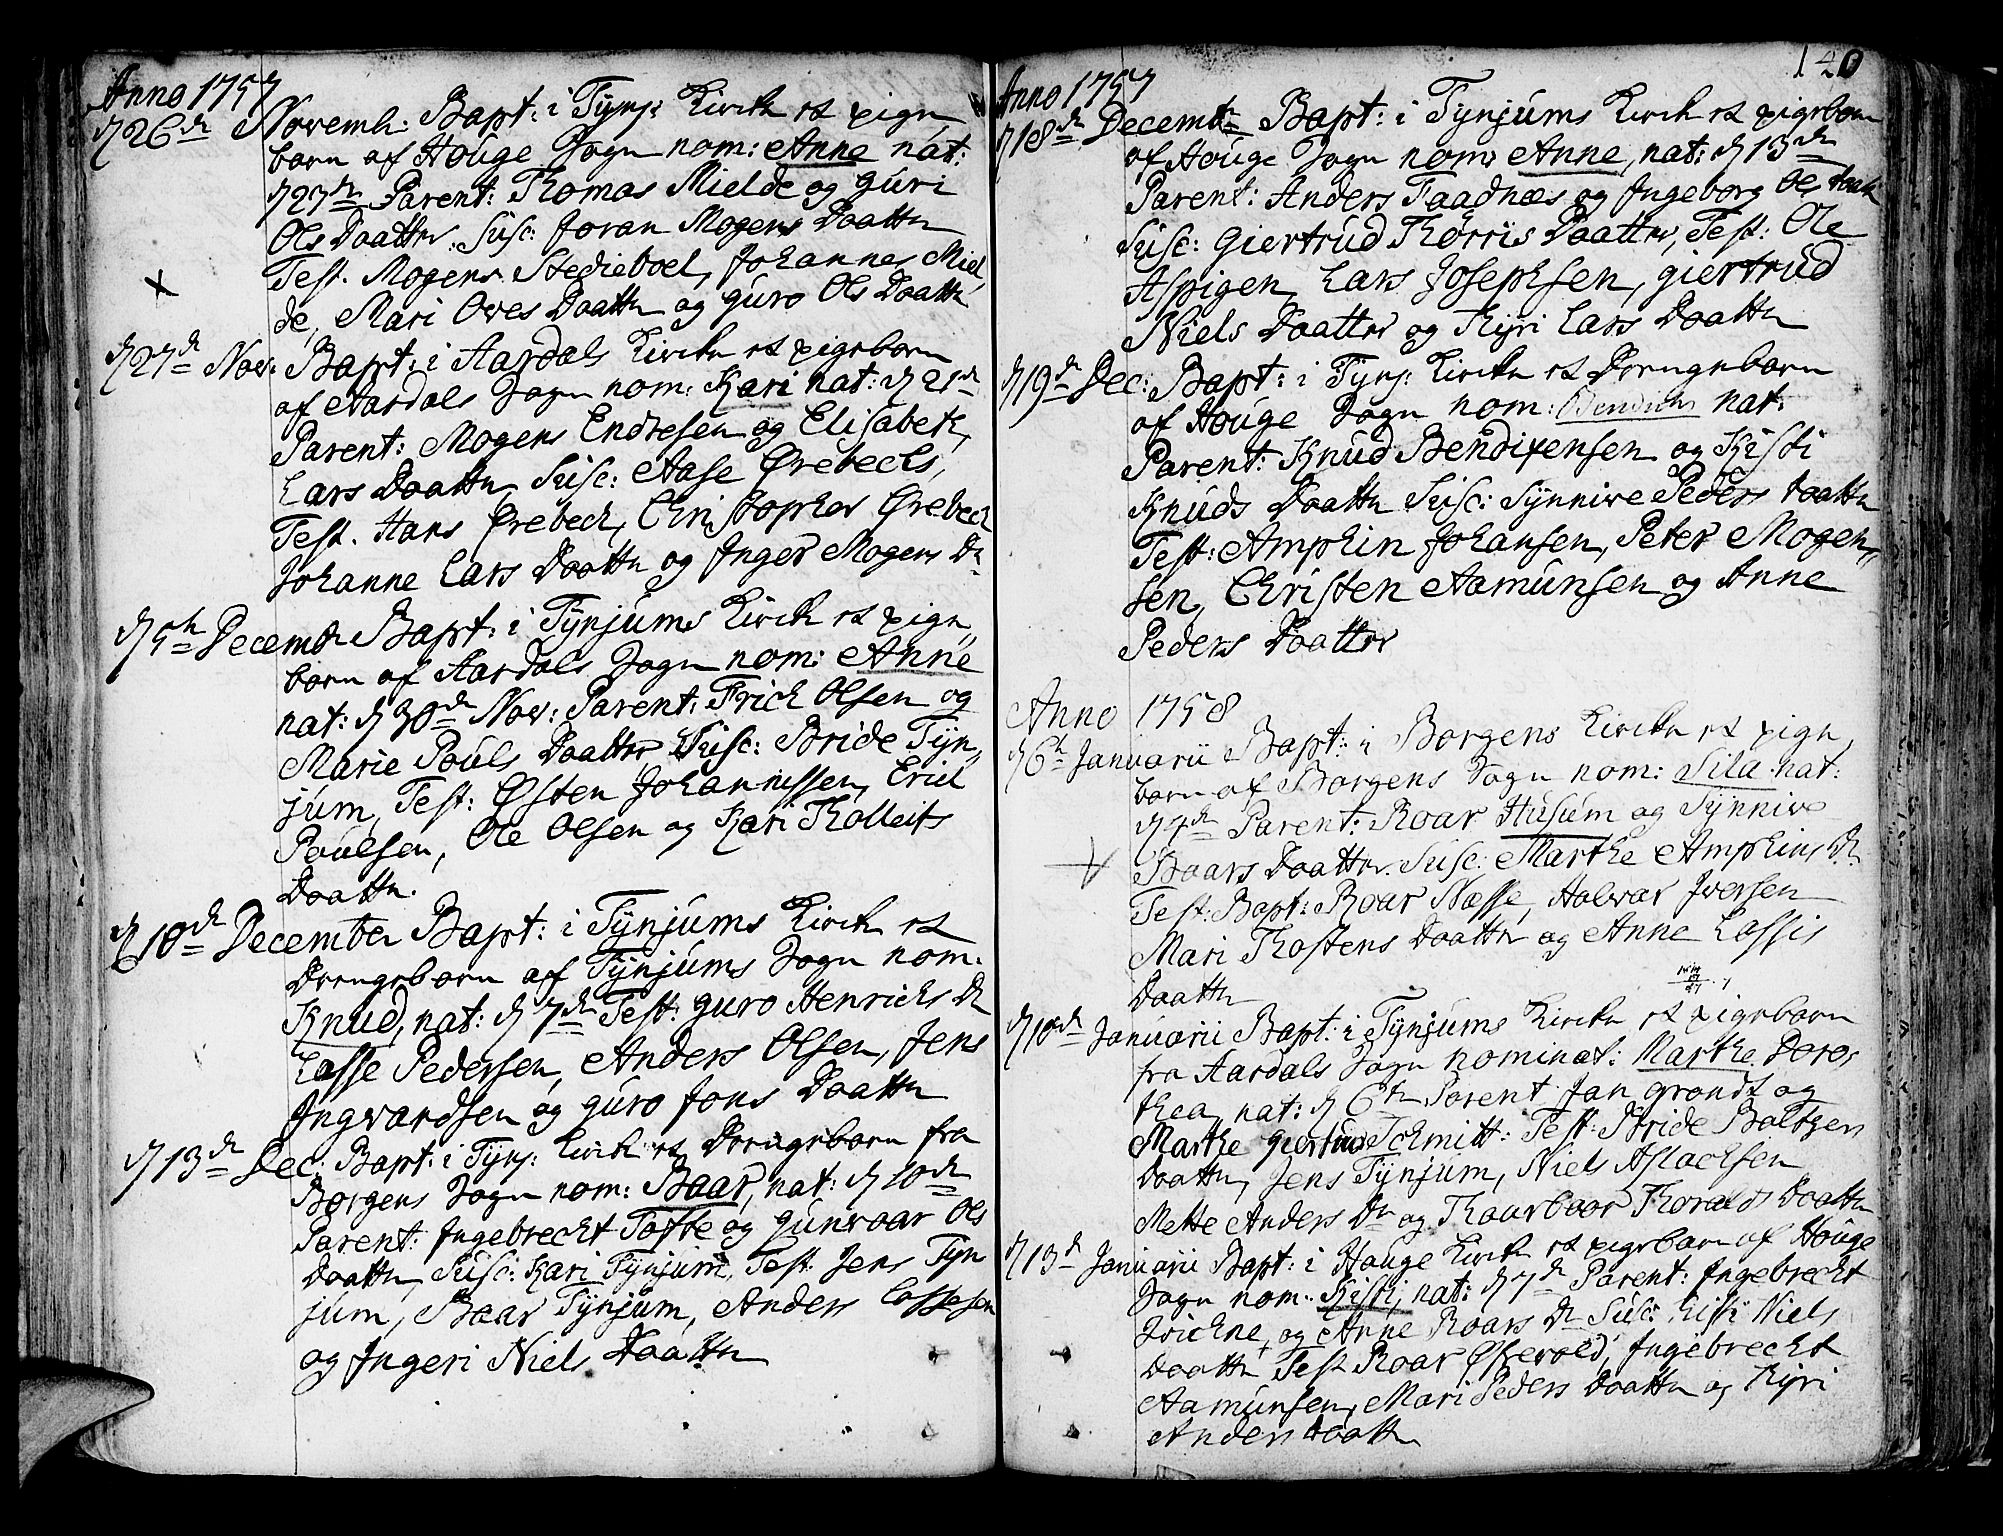 Anno 1757
d 26de Novemb: Bapt: i Tÿnj: Kircke et pige
barn af Houge Sogn nom: Anne nat:
d 27de Parent: Thomas Mielde og Guri
Ols Daatter. Susc: Joran Mogens Daatter
Test. Mogens Stedieboel, Johannes Miel
de, Mari Oves Daatter og Guro Ols Daatter
d 27de Nov: Bapt: i Aardals Kircke et pigebarn
af Aardals Sogn nom: Kari nat: d 21de
Parent: Mogens Endresen og Elisabeth
Lars Daatter, Susc: Aase Ørebecks,
Test. Hans Ørebeck, Christopher Ørebeck
Johanne Lars Daatter og Inger Mogens Dr
d 5te Decembr Bapt: i Tÿnjums Kircke et pige
barn af Aardals Sogn nom: Anne
nat: d 30de Nov: Parent: Erick Olsen og
Marie Pouls Daatter Susc: Bride Tÿn
jum, Test: Østen Johannissen, Erick
Poulsen, Ole Olsen og Kari Tholleifs
Daatter.
d 10de December Bapt: i Tÿnjums Kircke et
Drengebarn af Tÿnjums Sogn nom:
Knud, nat: d 7de Test: Guro Henrichs Dr
Lasse Pedersen, Anders Olsen, Jens
Ingvardsen og Guro Jons Daatter
d 13de Dec: Bapt: i Tÿnj: Kircke et Drengebarn fra
Borgens Sogn nom: Baar, nat: d 10de
Parent: Ingebrecht Tofte og Gunvoar Ols
Daatter, Susc: Kari Tÿnjum, Test: Jens Tÿn
jum, Baar Tÿnjum, Anders Lassesen
og Ingeri Niels Daatter
140
Anno 1757
d 18de Decembr Bapt: i Tÿnjums Kircke et pigebarn
af Houge Sogn nom: Anne, nat: d 13de
Parent: Anders Taadnæs og Ingeborg Ols daatter
Susc: Giertrud Thorris Daatter, Test: Ole
Aspigen, Lars Josephsen, Giertrud
Niels Daatter og Kÿri Lars Daatter
d 19de Dec: Bapt: i Tÿnj: Kircke et Drengebarn
af Houge Sogn nom: nat:
Parent: Knud Bendixensen og Kisti
Knuds Daatter Susc: Sÿnnive Peders daatter
Test: Amphin Johansen, Peter Mogen
sen, Christen Aamunsen og Anne
Peders Daatter
Anno 1758
d 6te Januarii Bapt: i Borgens Kircke et pige
barn af Borgens Sogn nom: Sila nat:
d 4de Parent: Roar Husum og Sÿnnive
Baars Daatter. Susc: Marthe Amphins Dr
Test: Bapt: Roar Næsse, Halvar Iversen
Mari Thostens Daatter og Anne Lassis
Daatter
d 10de Januarii Bapt: i Tÿnjums Kircke et pigebarn
fra Aardals Sogn nominat: Marthe Doro,
thea, nat: d 6te Parent Jan Grondt og
Marthe Giertrud Schmitt: Test: Bride Baltzers
Daatter, Jens Tÿnjum, Niels Aslachsen
Mette Anders Dr og Thoarboar Thoralds Daatter
d 13de Januarii Bapt: i Houge Kirck et pigebarn af Houge
Sogn nom: Kisti, nat: d 7de Parent: Ingebrecht
og Anne Roars Dr Susc: Kisti Niels
Daatter Test Roar Øfsevold, Ingebrecht
Aamunsen, Mari Peders Daatter og Kÿri
Anders daatter